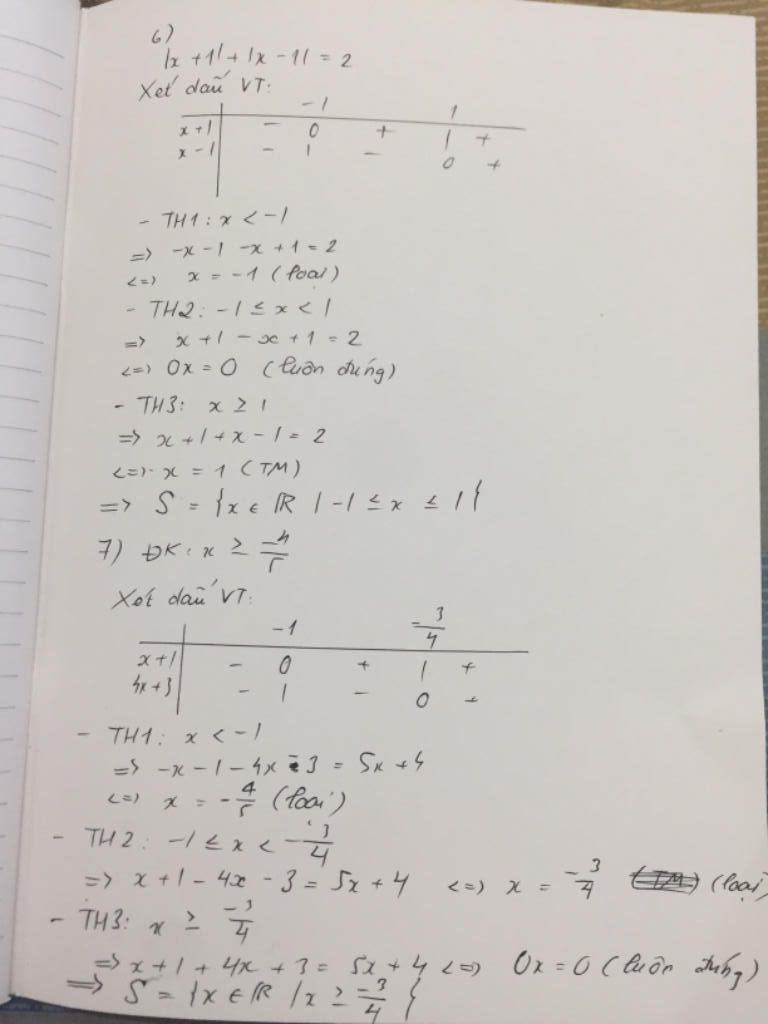 6)
|x + 1| + |x - 1| = 2
Xét dấu VT:
-1 1
x + 1 - 0 + | +
x - 1 - | - 0 +
- TH1: x < -1
=> -x - 1 - x + 1 = 2
<=> x = -1 (loại)
- TH2: -1 ≤ x < 1
=> x + 1 - x + 1 = 2
<=> 0x = 0 (luôn đúng)
- TH3: x ≥ 1
=> x + 1 + x - 1 = 2
<=> x = 1 (TM)
=> S = {x ∈ ℝ | -1 ≤ x ≤ 1}
7) ĐK: x ≥ -4/5
Xét dấu VT:
-1 -3/4
x + 1 - 0 + | +
4x + 3 - | - 0 +
- TH1: x < -1
=> -x - 1 - 4x - 3 = 5x + 4
<=> x = -4/5 (loại)
- TH2: -1 ≤ x < -3/4
=> x + 1 - 4x - 3 = 5x + 4 <=> x = -3/4 (TM) (loại)
- TH3: x ≥ -3/4
=> x + 1 + 4x + 3 = 5x + 4 <=> 0x = 0 (luôn đúng)
=> S = {x ∈ ℝ | x ≥ -3/4}